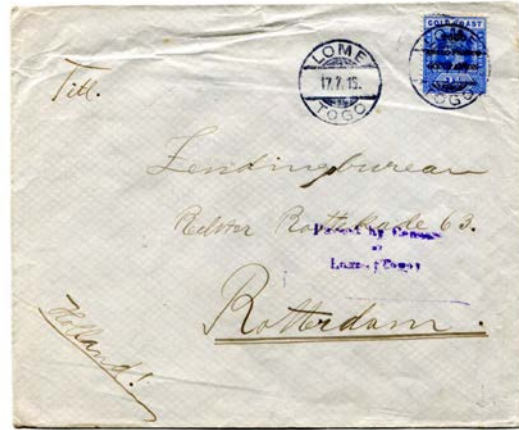 GOLD COAST
LOME
17.7.15.
TOGO
LOME
TOGO
Titl.
Zendingbureau
Rechter Rottekade 63.
Passed by Censor
at
Lome (Togo)
Rotterdam.
Holland!